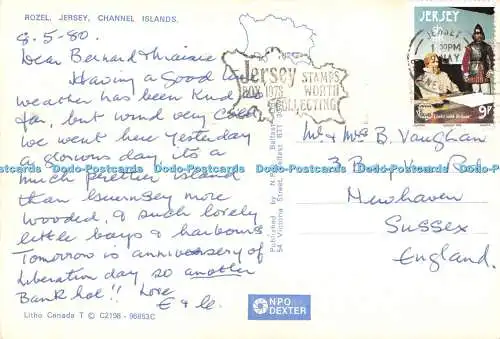 ROZEL, JERSEY, CHANNEL ISLANDS.
8.5.80.
Dear Bernard & Maisie
Having a Good
weather has been Kind so
far, but wind very Cold
we went here Yesterday
a glorious day, its a
much prettier island
than Guernsey more
wooded, & such lovely
little bays & harbours
Tomorrow is anniversary of
liberation day so another
Bank hol!! Love
E &
Litho Canada T © C2198 - 96853C
Published by N.P.O. Belfast
54 Victoria Street, Belfast BT1
NPO
DEXTER
Jersey
BOX 1978
STAMPS
WORTH
COLLECTING
JERSEY
PM
MAY
JERSEY
9P
Mr & Mrs B. Vaughan
3
Newhaven
Sussex
England.
Dodo-Postcards Dodo-Postcards Dodo-Postcards Dodo-Postcards Dodo-Postcards